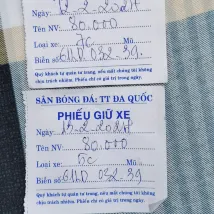 Ngày: 12.2.2024
Tên NV: 80.000
Loại xe: Mã
Biển số: 61HD 032.39.
Quý khách tự quản tư trang, nếu mất chúng tôi không
chịu trách nhiệm. Phiếu chỉ có giá trị trong ngày.
SÂN BÓNG ĐÁ: TT ĐA QUỐC
PHIẾU GIỮ XE
Ngày: 2.2024
Tên NV: 80.000
Loại xe: Mã
Biển số: 61HD 032.39
Quý khách tự quản tư trang, nếu mất chúng tôi không
chịu trách nhiệm. Phiếu chỉ có giá trị trong ngày.